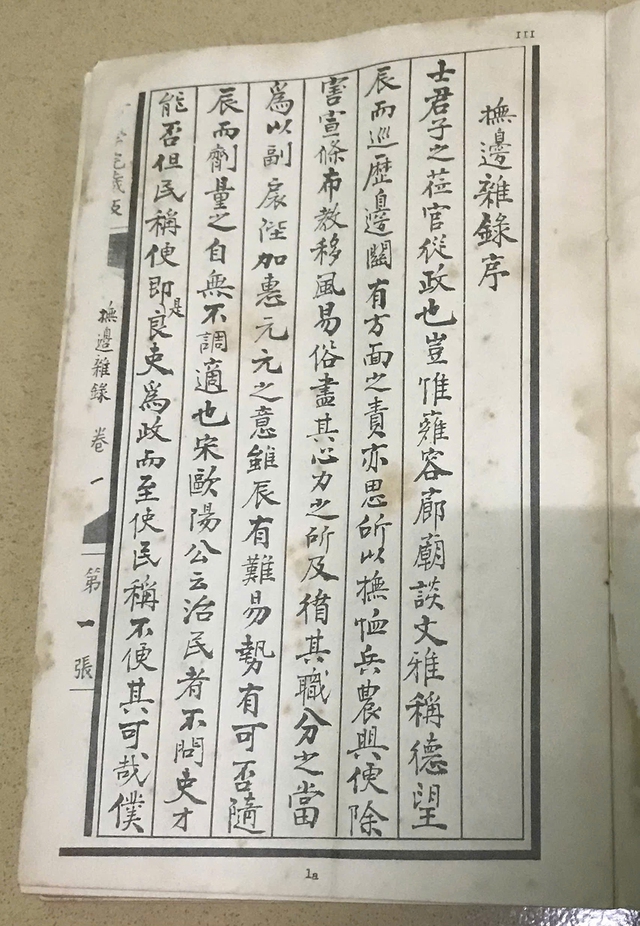 III
撫邊雜錄序
士君子之莅官從政也豈惟雍容廊廟談文雅稱德望
辰而巡歷邊關有方面之責亦思所以撫恤兵農興使除
害宣條布教移風易俗盡其心力之所及脩其職分之當
為以副扆陛加惠元元之意雖辰有難易勢有可否隨
辰而劑量之自無不調適也宋歐陽公云治民者不問吏才
能否但民稱使即是良吏為政而至使民稱不便其可哉僕
撫邊雜錄 卷一
第一張
1a